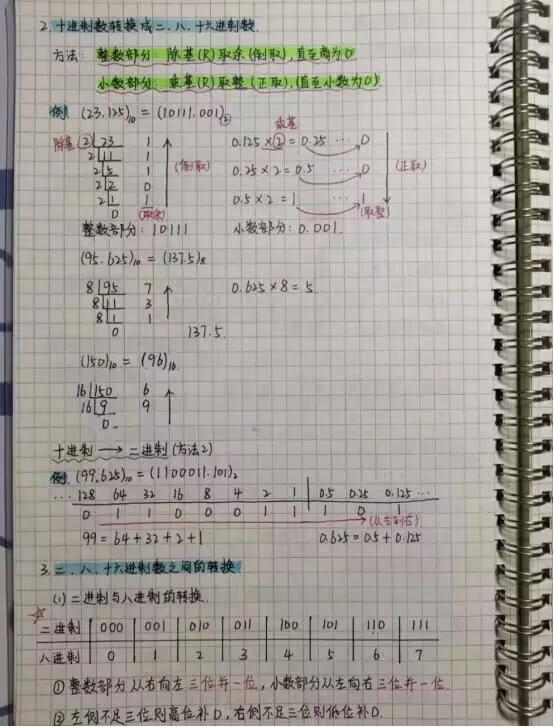 2.十进制数转换成二、八、十六进制数.
方法: 整数部分: 除基(R)取余(倒取),直至商为0
小数部分: 乘基(R)取整(正取),(直至小数为0)
例. (23.125)₁₀ = (10111.001)₂
乘基
除基 2 23 1 0.125 × 2 = 0.25 ... 0
2 11 1
2 5 1 (倒取) 0.25 × 2 = 0.5 ... 0 (正取)
2 2 0
2 1 1 0.5 × 2 = 1 ... 1
0 (取余) (取整)
整数部分: 10111 小数部分: 0.001.
(95.625)₁₀ = (137.5)₈
8 95 7 0.625 × 8 = 5.
8 11 3
8 1 1
0 137.5.
(150)₁₀ = (96)₁₆
16 150 6
16 9 9
0
十进制 → 二进制(方法2)
例. (99.625)₁₀ = (1100011.101)₂
... 128 64 32 16 8 4 2 1 0.5 0.25 0.125 ...
0 1 1 0 0 0 1 1 1 0 1
(从左到右)
99 = 64 + 32 + 2 + 1 0.625 = 0.5 + 0.125
3.二、八、十六进制数之间的转换
(1)二进制与八进制的转换.
二进制 000 001 010 011 100 101 110 111
八进制 0 1 2 3 4 5 6 7
① 整数部分从右向左三位并一位, 小数部分从左向右三位并一位.
② 左侧不足三位则高位补0, 右侧不足三位则低位补0.